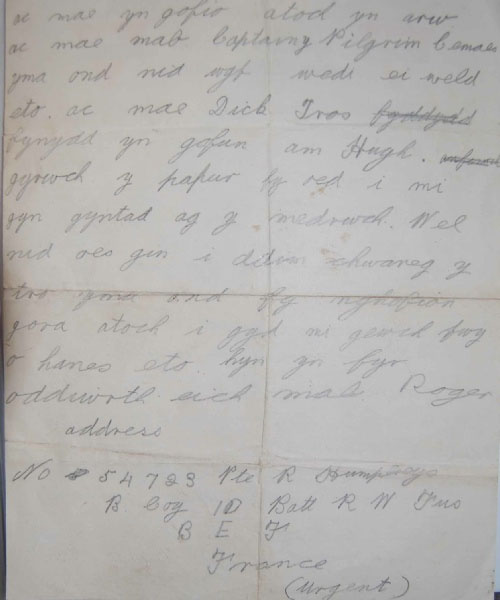 ac mae yn gofio atoch yn arw
ac mae mab Captaing Pilgrim Cemaes
yma ond nid wyf wedi ei weld
eto. ac mae Dick Tros
fynydd yn gofun am Hugh.
gyrwch y papur fy red i mi
gyn gyntad ag y medrwch. Wel
nid oes gen i ddim chwaneg y
tro yma ond fy nghofion
gora atoch i gyd mi gewch fwy
o hanes eto. hyn yn fyr
oddiwrth eich mab Roger
address
No 54723 Pte R Humphreys
B. Coy 10 Batt R W Fus
B E F
France
(Urgent)